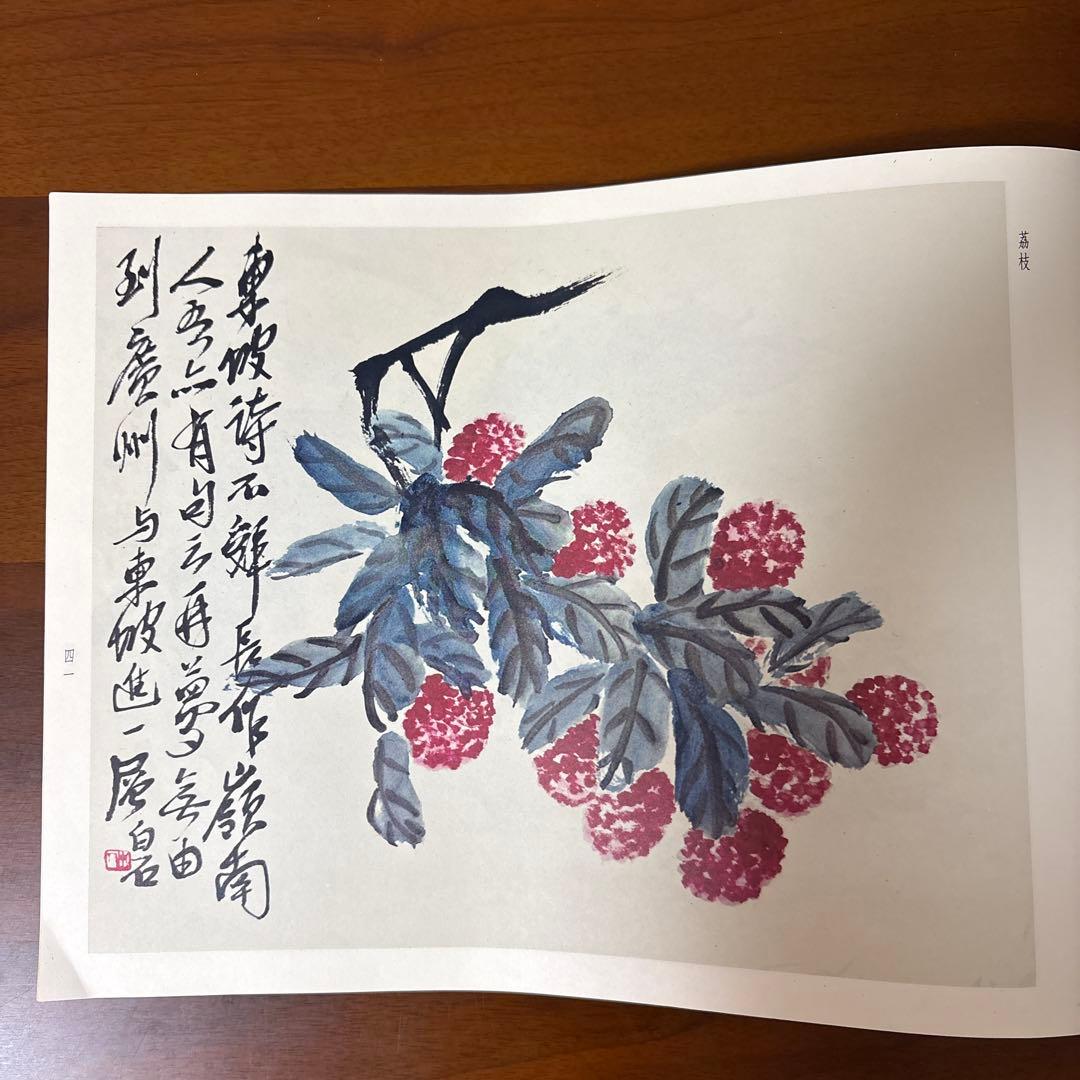 荔枝
東坡詩不辭長作嶺南
人吾亦有句云再夢無由
到廣州与東坡進一層白石
四一